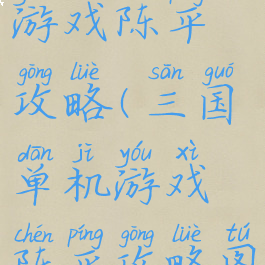 游戏陈平
gōng lüè sān guó
攻略(三国
dān jī yóu xì
单机游戏
chén píng gōng lüè tú
陈平攻略图